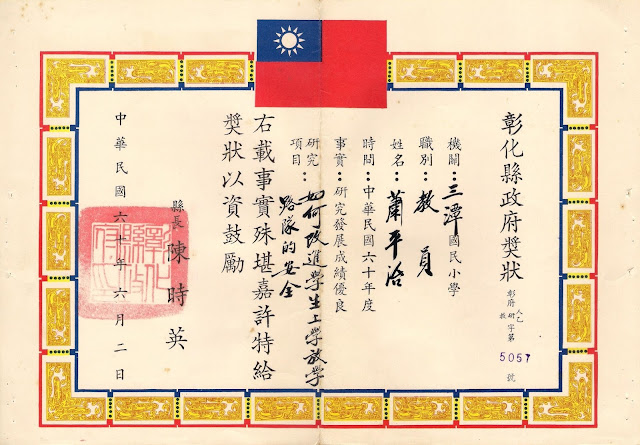 彰化縣政府獎狀
彰府人乙教研字第5057號
機關：三潭國民小學
職別：教員
姓名：蕭平治
時間：中華民國六十年度
事實：研究發展成績優良
研究項目：如何改進學生上學放學
路隊的安全
右載事實殊堪嘉許特給
獎狀以資鼓勵
縣長 陳時英
中華民國六十一年六月二日